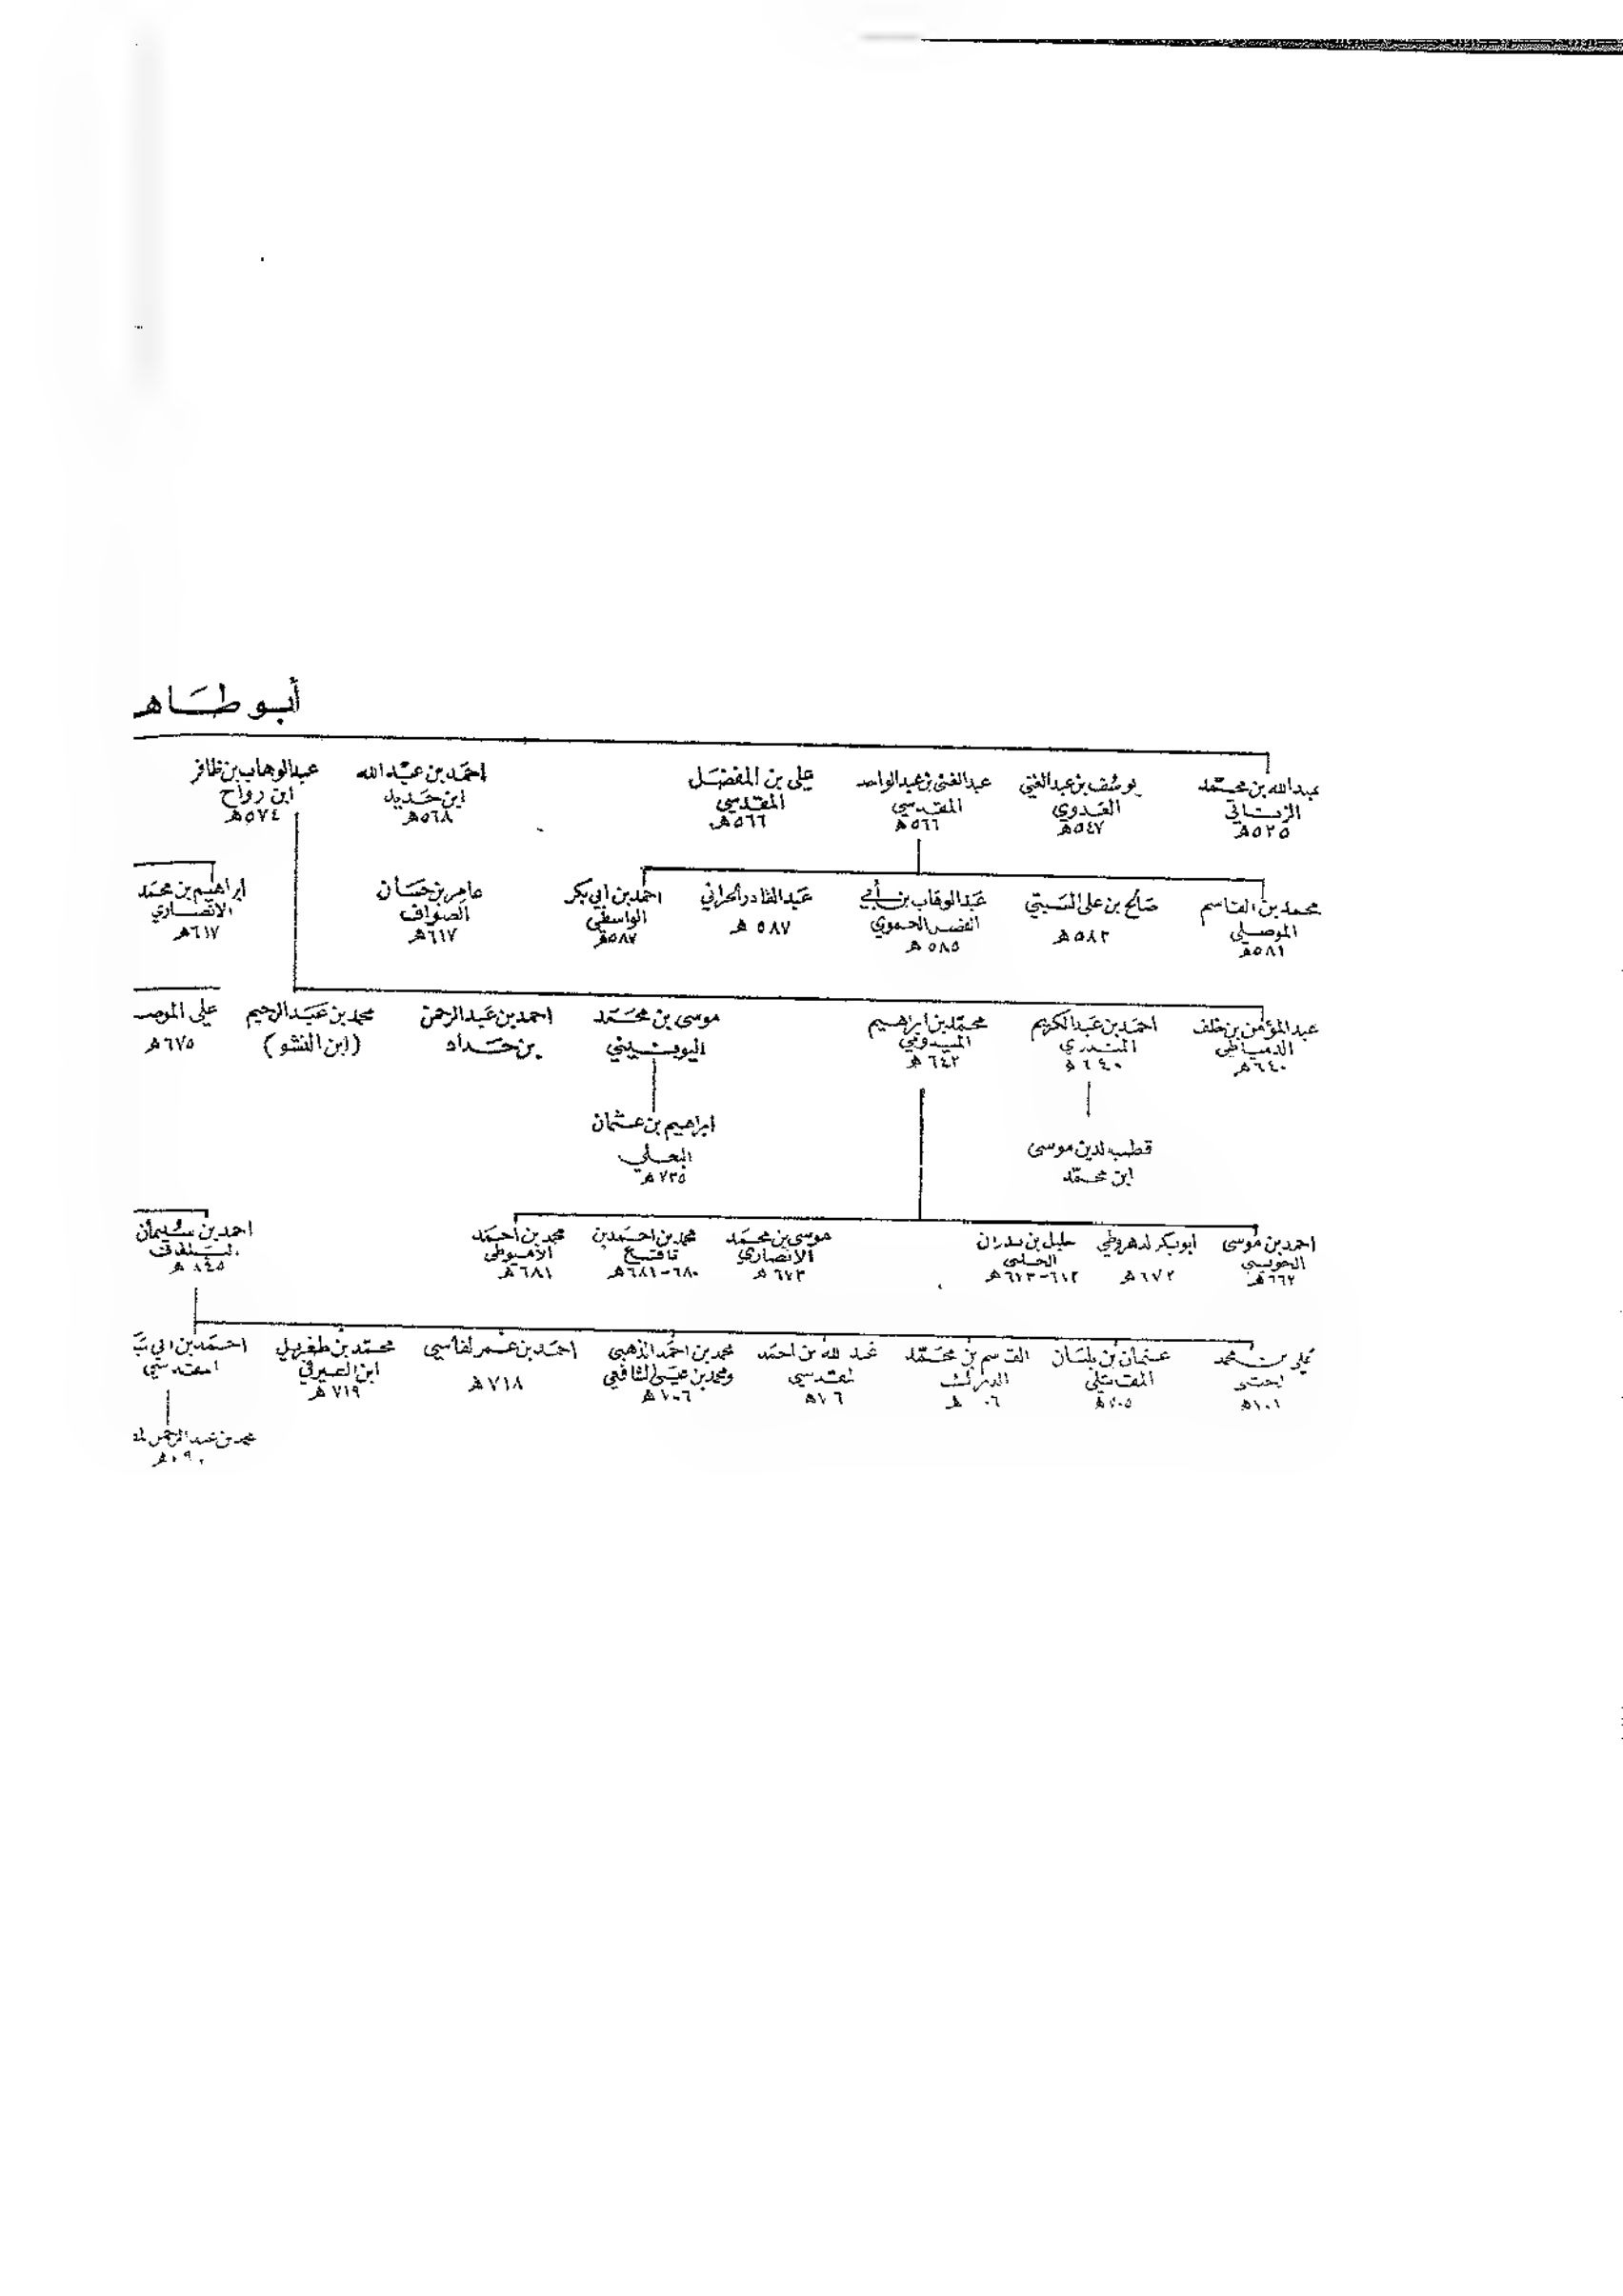 أبو طَاه
عبدالله بن محمّد
٥٢٥هـ
يوسُف بن عبدالغني
العَدوي
٥٤٧هـ
عبدالغني بن عبدالواحد
المقدسي
٥٦٦هـ
علي بن المفضَل
المقدسي
٥٦٦هـ
احمَد بن عبْدالله
ابن حَديد
٥٦٨هـ
عبدالوهاب بن ظافر
ابن رواح
٥٧٤هـ
محمد بن القاسم
الموصلي
٥٨١هـ
صَالح بن علي السَبتي
٥٨٢هـ
عَبدالوهاب بن أبي
الحموي
٥٨٥هـ
عَبدالقادر الحراني
٥٨٧هـ
احمَد بن ابي بكر
الواسطي
٥٨٧هـ
عامِر بن حسَان
الصواف
٦١٧هـ
ابراهيم بن محمَد
الانصاري
٦١٧هـ
عبدالمؤمن بن خلف
الدمياطي
٦٤٠هـ
احمَد بن عَبدالكريم
المنذري
٦٤٠هـ
محمّد بن ابراهيم
الميدومي
٦٤٢هـ
موسى بن محمَد
اليونيني
احمد بن عَبدالرحمن
بن حَداد
محمد بن عَبدالرحيم
(ابن النشو)
علي الموصـ
٦٧٥هـ
قطب لدين موسى
ابن محمّد
ابراهيم بن عثمان
البعلي
٧٣٥هـ
احمد بن موسى
٦٦٢هـ
ابوبكر
٦٧٢هـ
خليل بن بدران
الحلبي
موسى بن محمَد
الانصاري
٦٧٣هـ
محمد بن احمَد بن
٦٨٠-٦٨١هـ
محمد بن أحمَد
الاميوطي
٦٨١هـ
احمد بن سُليمان
محمد
عثمان بن بلبَان
المقاتلي
القاسم بن محَمّد
عبد لله بن احمَد
محمد بن احمَد الذهبي
احمَد بن عمر لفاسي
٧١٨هـ
محمّد بن طغريل
ابن الصيرفي
٧١٩هـ
احمَد بن ابي بَـ
محمد بن عبدالرحمن